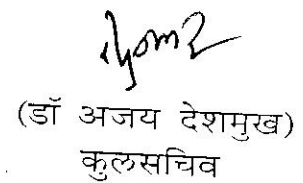 (डॉ अजय देशमुख)
कुलसचिव